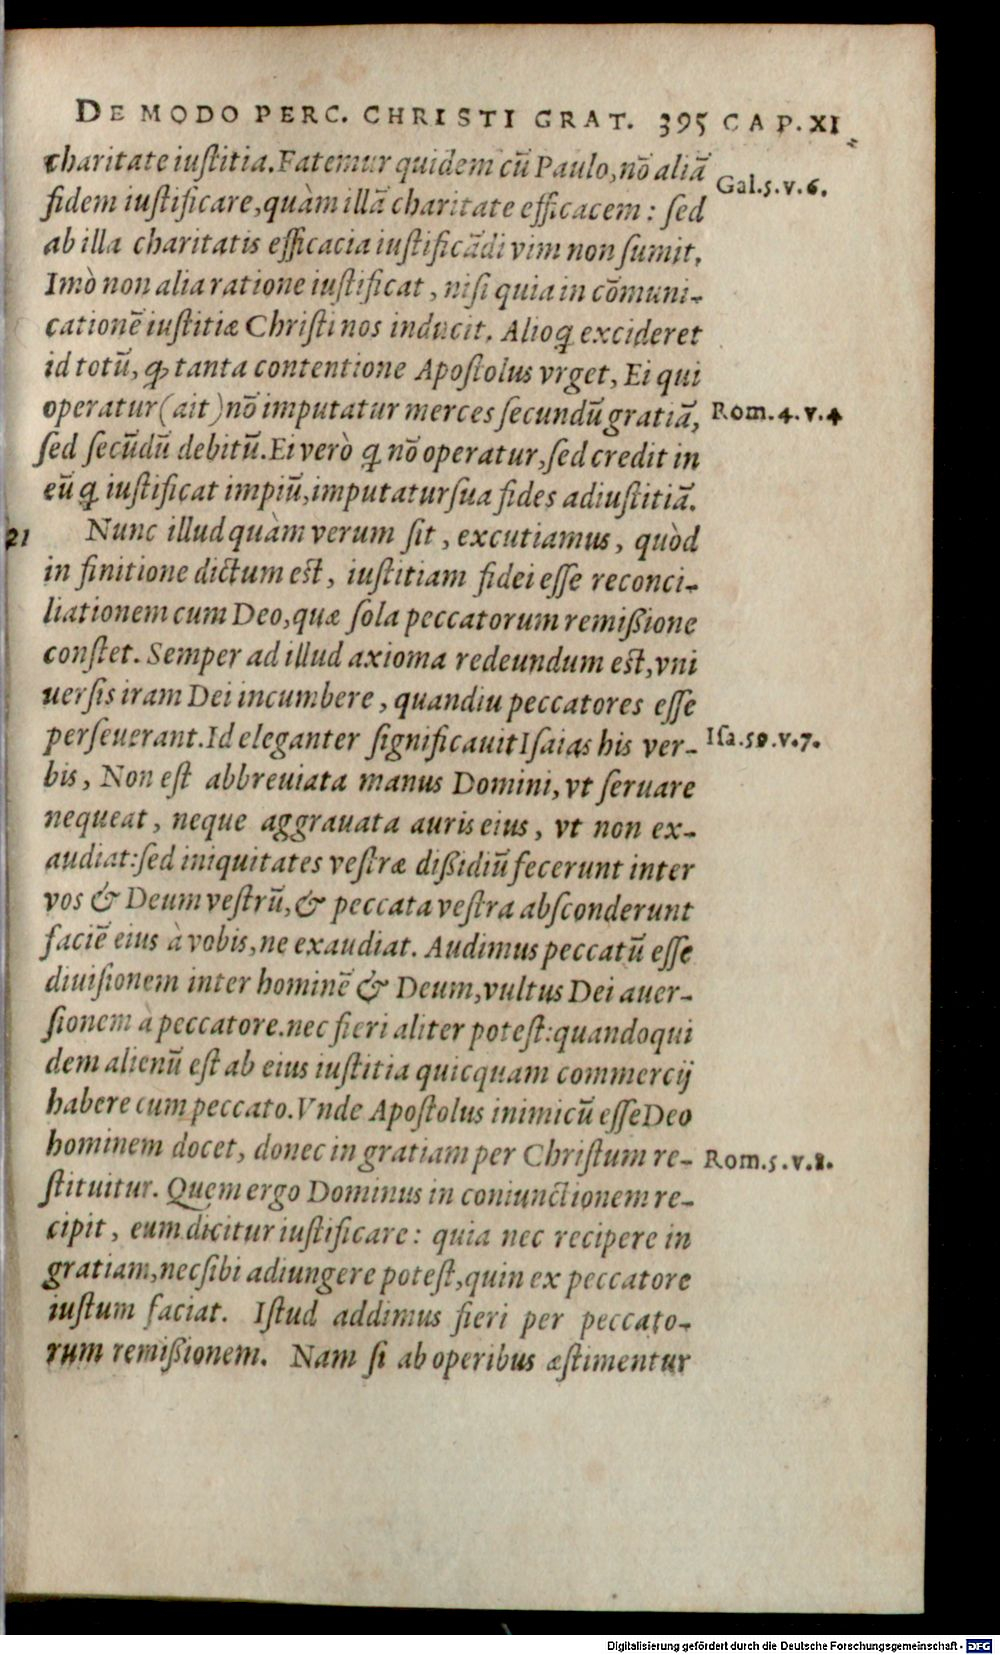 DE MODO PERC. CHRISTI GRAT. 395 CAP. XI
charitate iuſtitia. Fatemur quidem cū Paulo, nō aliā
Gal. 5. v. 6.
fidem iuſtificare, quàm illā charitate efficacem: ſed
ab illa charitatis efficacia iuſtificādi vim non ſumit.
Imò non alia ratione iuſtificat, niſi quia in cōmuni-
cationē iuſtitiæ Chriſti nos inducit. Alioꝗ excideret
id totū, ꝙ tanta contentione Apoſtolus vrget, Ei qui
operatur (ait) nō imputatur merces ſecundū gratiā,
Rom. 4. v. 4
ſed ſecūdū debitū. Ei verò ꝗ nō operatur, ſed credit in
eū ꝗ iuſtificat impiū, imputatur ſua fides ad iuſtitiā.
21 Nunc illud quàm verum ſit, excutiamus, quòd
in finitione dictum eſt, iuſtitiam fidei eſſe reconci-
liationem cum Deo, quæ ſola peccatorum remißione
conſtet. Semper ad illud axioma redeundum eſt, vni
uerſis iram Dei incumbere, quandiu peccatores eſſe
perſeuerant. Id eleganter ſignificauit Iſaias his ver-
Iſa. 59. v. 7.
bis, Non eſt abbreuiata manus Domini, vt ſeruare
nequeat, neque aggrauata auris eius, vt non ex-
audiat: ſed iniquitates veſtræ dißidiū fecerunt inter
vos & Deum veſtrū, & peccata veſtra abſconderunt
faciē eius à vobis, ne exaudiat. Audimus peccatū eſſe
diuiſionem inter hominē & Deum, vultus Dei auer-
ſionem à peccatore. nec fieri aliter poteſt: quandoqui
dem alienū eſt ab eius iuſtitia quicquam commercij
habere cum peccato. Vnde Apoſtolus inimicū eſſe Deo
hominem docet, donec in gratiam per Chriſtum re-
Rom. 5. v. 8.
ſtituitur. Quem ergo Dominus in coniunctionem re-
cipit, eum dicitur iuſtificare: quia nec recipere in
gratiam, nec ſibi adiungere poteſt, quin ex peccatore
iuſtum faciat. Iſtud addimus fieri per peccato-
rum remißionem. Nam ſi ab operibus æſtimentur
Digitalisierung gefördert durch die Deutsche Forschungsgemeinschaft - DFG